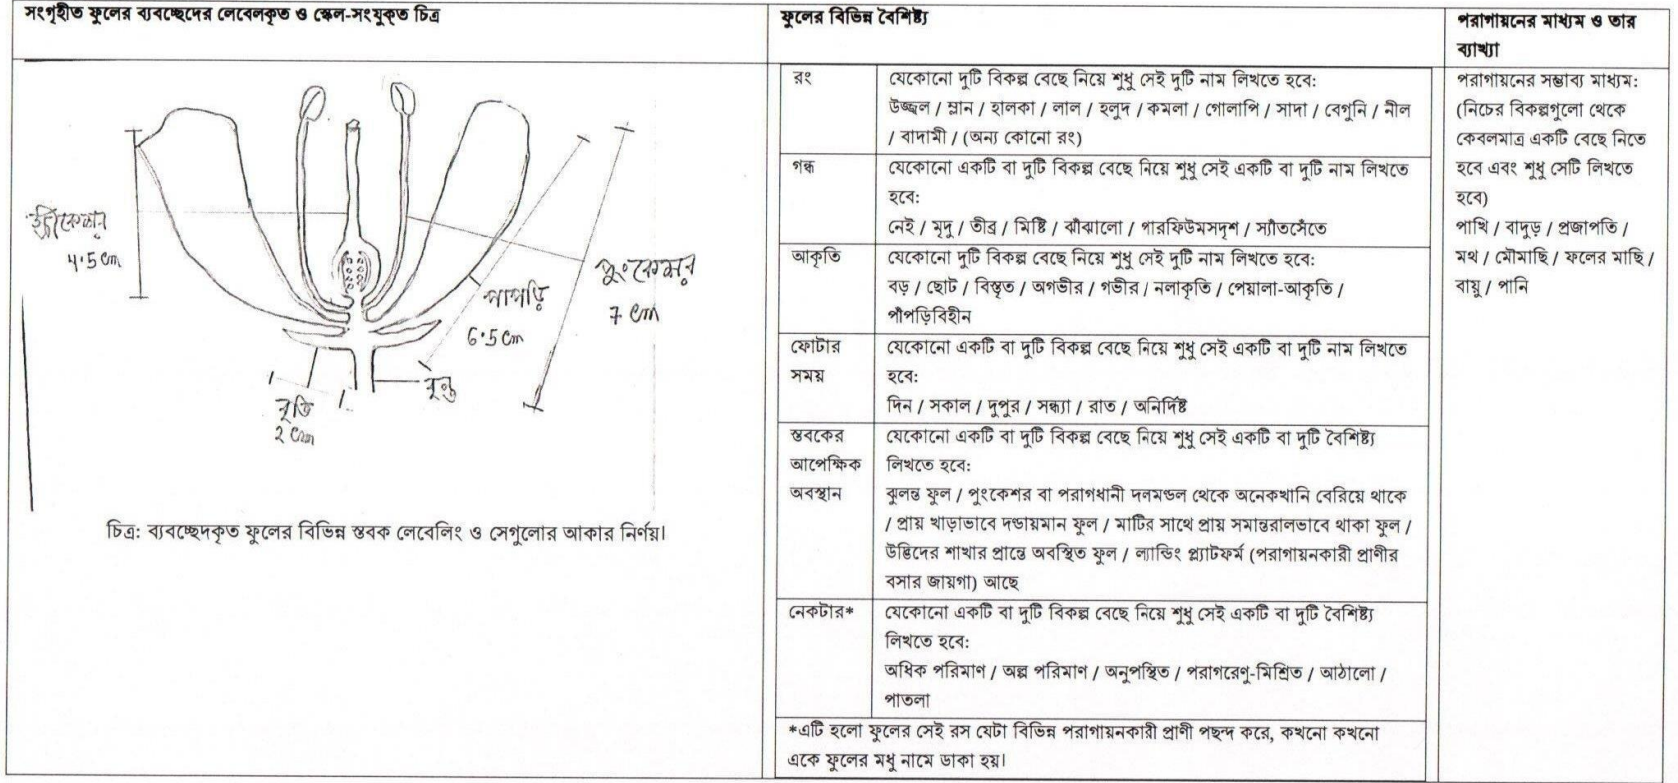 সংগৃহীত ফুলের ব্যবচ্ছেদের লেবেলকৃত ও স্কেল-সংযুক্ত চিত্র
স্ত্রীকেশর
৪.৫ cm
পুংকেশর
৭ cm
পাপড়ি
৬.৫ cm
বৃন্ত
বৃতি
২ cm
চিত্র: ব্যবচ্ছেদকৃত ফুলের বিভিন্ন স্তবক লেবেলিং ও সেগুলোর আকার নির্ণয়।
ফুলের বিভিন্ন বৈশিষ্ট্য
রং
যেকোনো দুটি বিকল্প বেছে নিয়ে শুধু সেই দুটি নাম লিখতে হবে:
উজ্জ্বল / ম্লান / হালকা / লাল / হলুদ / কমলা / গোলাপি / সাদা / বেগুনি / নীল
/ বাদামী / (অন্য কোনো রং)
গন্ধ
যেকোনো একটি বা দুটি বিকল্প বেছে নিয়ে শুধু সেই একটি বা দুটি নাম লিখতে
হবে:
নেই / মৃদু / তীব্র / মিষ্টি / ঝাঁঝালো / পারফিউমসদৃশ / স্যাঁতসেঁতে
আকৃতি
যেকোনো দুটি বিকল্প বেছে নিয়ে শুধু সেই দুটি নাম লিখতে হবে:
বড় / ছোট / বিস্তৃত / অগভীর / গভীর / নলাকৃতি / পেয়ালা-আকৃতি /
পাঁপড়িবিহীন
ফোটার
সময়
যেকোনো একটি বা দুটি বিকল্প বেছে নিয়ে শুধু সেই একটি বা দুটি নাম লিখতে
হবে:
দিন / সকাল / দুপুর / সন্ধ্যা / রাত / অনির্দিষ্ট
স্তবকের
আপেক্ষিক
অবস্থান
যেকোনো একটি বা দুটি বিকল্প বেছে নিয়ে শুধু সেই একটি বা দুটি বৈশিষ্ট্য
লিখতে হবে:
ঝুলন্ত ফুল / পুংকেশর বা পরাগধানী দলমন্ডল থেকে অনেকখানি বেরিয়ে থাকে
/ প্রায় খাড়াভাবে দন্ডায়মান ফুল / মাটির সাথে প্রায় সমান্তরালভাবে থাকা ফুল /
উদ্ভিদের শাখার প্রান্তে অবস্থিত ফুল / ল্যান্ডিং প্ল্যাটফর্ম (পরাগায়নকারী প্রাণীর
বসার জায়গা) আছে
নেকটার*
যেকোনো একটি বা দুটি বিকল্প বেছে নিয়ে শুধু সেই একটি বা দুটি বৈশিষ্ট্য
লিখতে হবে:
অধিক পরিমাণ / অল্প পরিমাণ / অনুপস্থিত / পরাগরেণু-মিশ্রিত / আঠালো /
পাতলা
*এটি হলো ফুলের সেই রস যেটা বিভিন্ন পরাগায়নকারী প্রাণী পছন্দ করে, কখনো কখনো
একে ফুলের মধু নামে ডাকা হয়।
পরাগায়নের মাধ্যম ও তার
ব্যাখ্যা
পরাগায়নের সম্ভাব্য মাধ্যম:
(নিচের বিকল্পগুলো থেকে
কেবলমাত্র একটি বেছে নিতে
হবে এবং শুধু সেটি লিখতে
হবে)
পাখি / বাদুড় / প্রজাপতি /
মথ / মৌমাছি / ফলের মাছি /
বায়ু / পানি